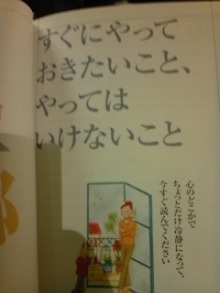 すぐにやって
おきたいこと、
やっては
いけないこと
心のどこかで
ちょっとだけ冷静になって、
今すぐ読んでください